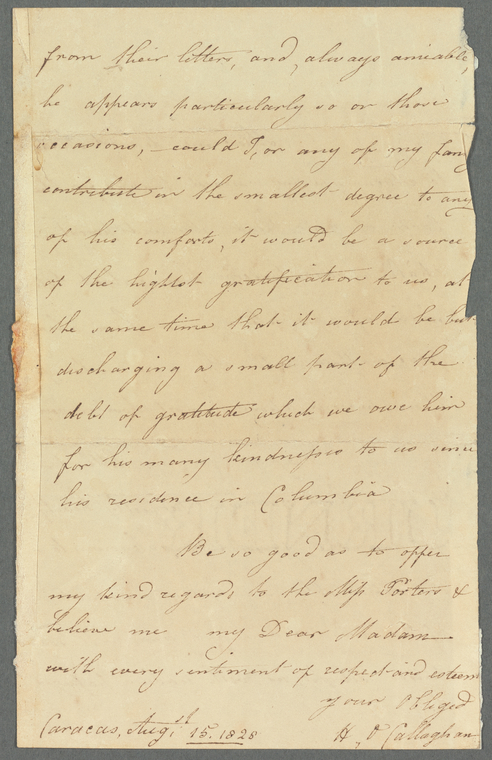 from their letters, and, always amiable,
he appears particularly so on those
occasions, - could I, or any of my fam
contribute in the smallest degree to any
of his comforts, it would be a source
of the highest gratification to us, at
the same time that it would be but
discharging a small part of the
debt of gratitude which we owe him
for his many kindnesses to us since
his residence in Columbia
Be so good as to offer
my kind regards to the Miss Porters &
believe me my Dear Madam
with every sentiment of respect and esteem
your obliged
Caracas, Augst 15. 1828 H, O'Callaghan